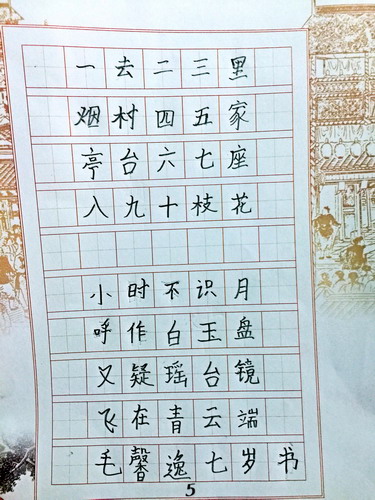 一去二三里
烟村四五家
亭台六七座
八九十枝花
小时不识月
呼作白玉盘
又疑瑶台镜
飞在青云端
毛馨逸七岁书
5